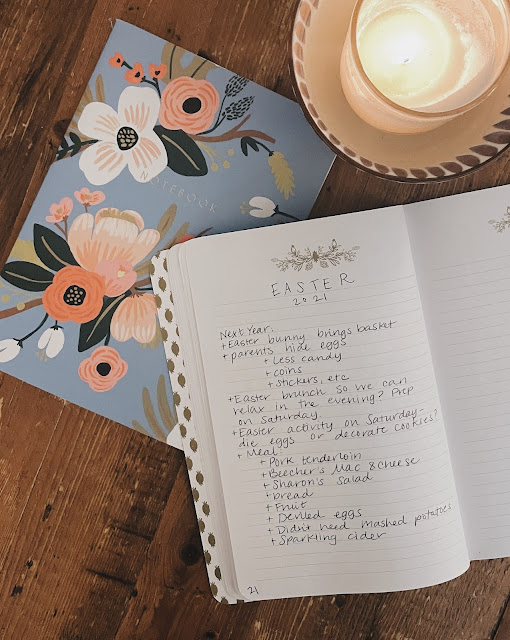 NOTEBOOK
EASTER
2021
Next Year:
+ Easter bunny brings basket
+ parents hide eggs
+ Less candy
+ coins
+ stickers, etc
+ Easter brunch so we can
relax in the evening? Prep
on Saturday
+ Easter activity on Saturday -
die eggs or decorate cookies?
+ Meal:
+ Pork tenderloin
+ Beecher's Mac & Cheese
+ Sharon's Salad
+ bread
+ Fruit
+ Deviled eggs
+ Didn't need mashed potatoes
+ Sparkling cider
21